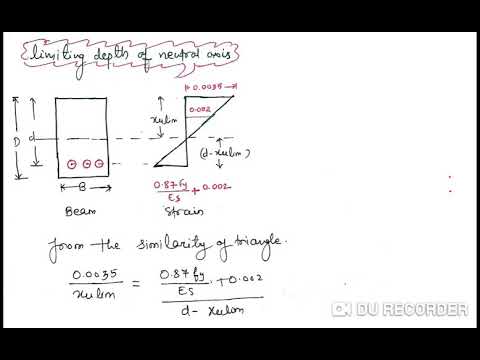 limiting depth of neutral axis
0.0035
0.002
xulim
D
d
(d-xulim)
0.87fy/Es + 0.002
B
Beam
Strain
from the similarity of triangle.
0.0035/xulim = (0.87fy/Es + 0.002)/(d- xulim)
DU RECORDER